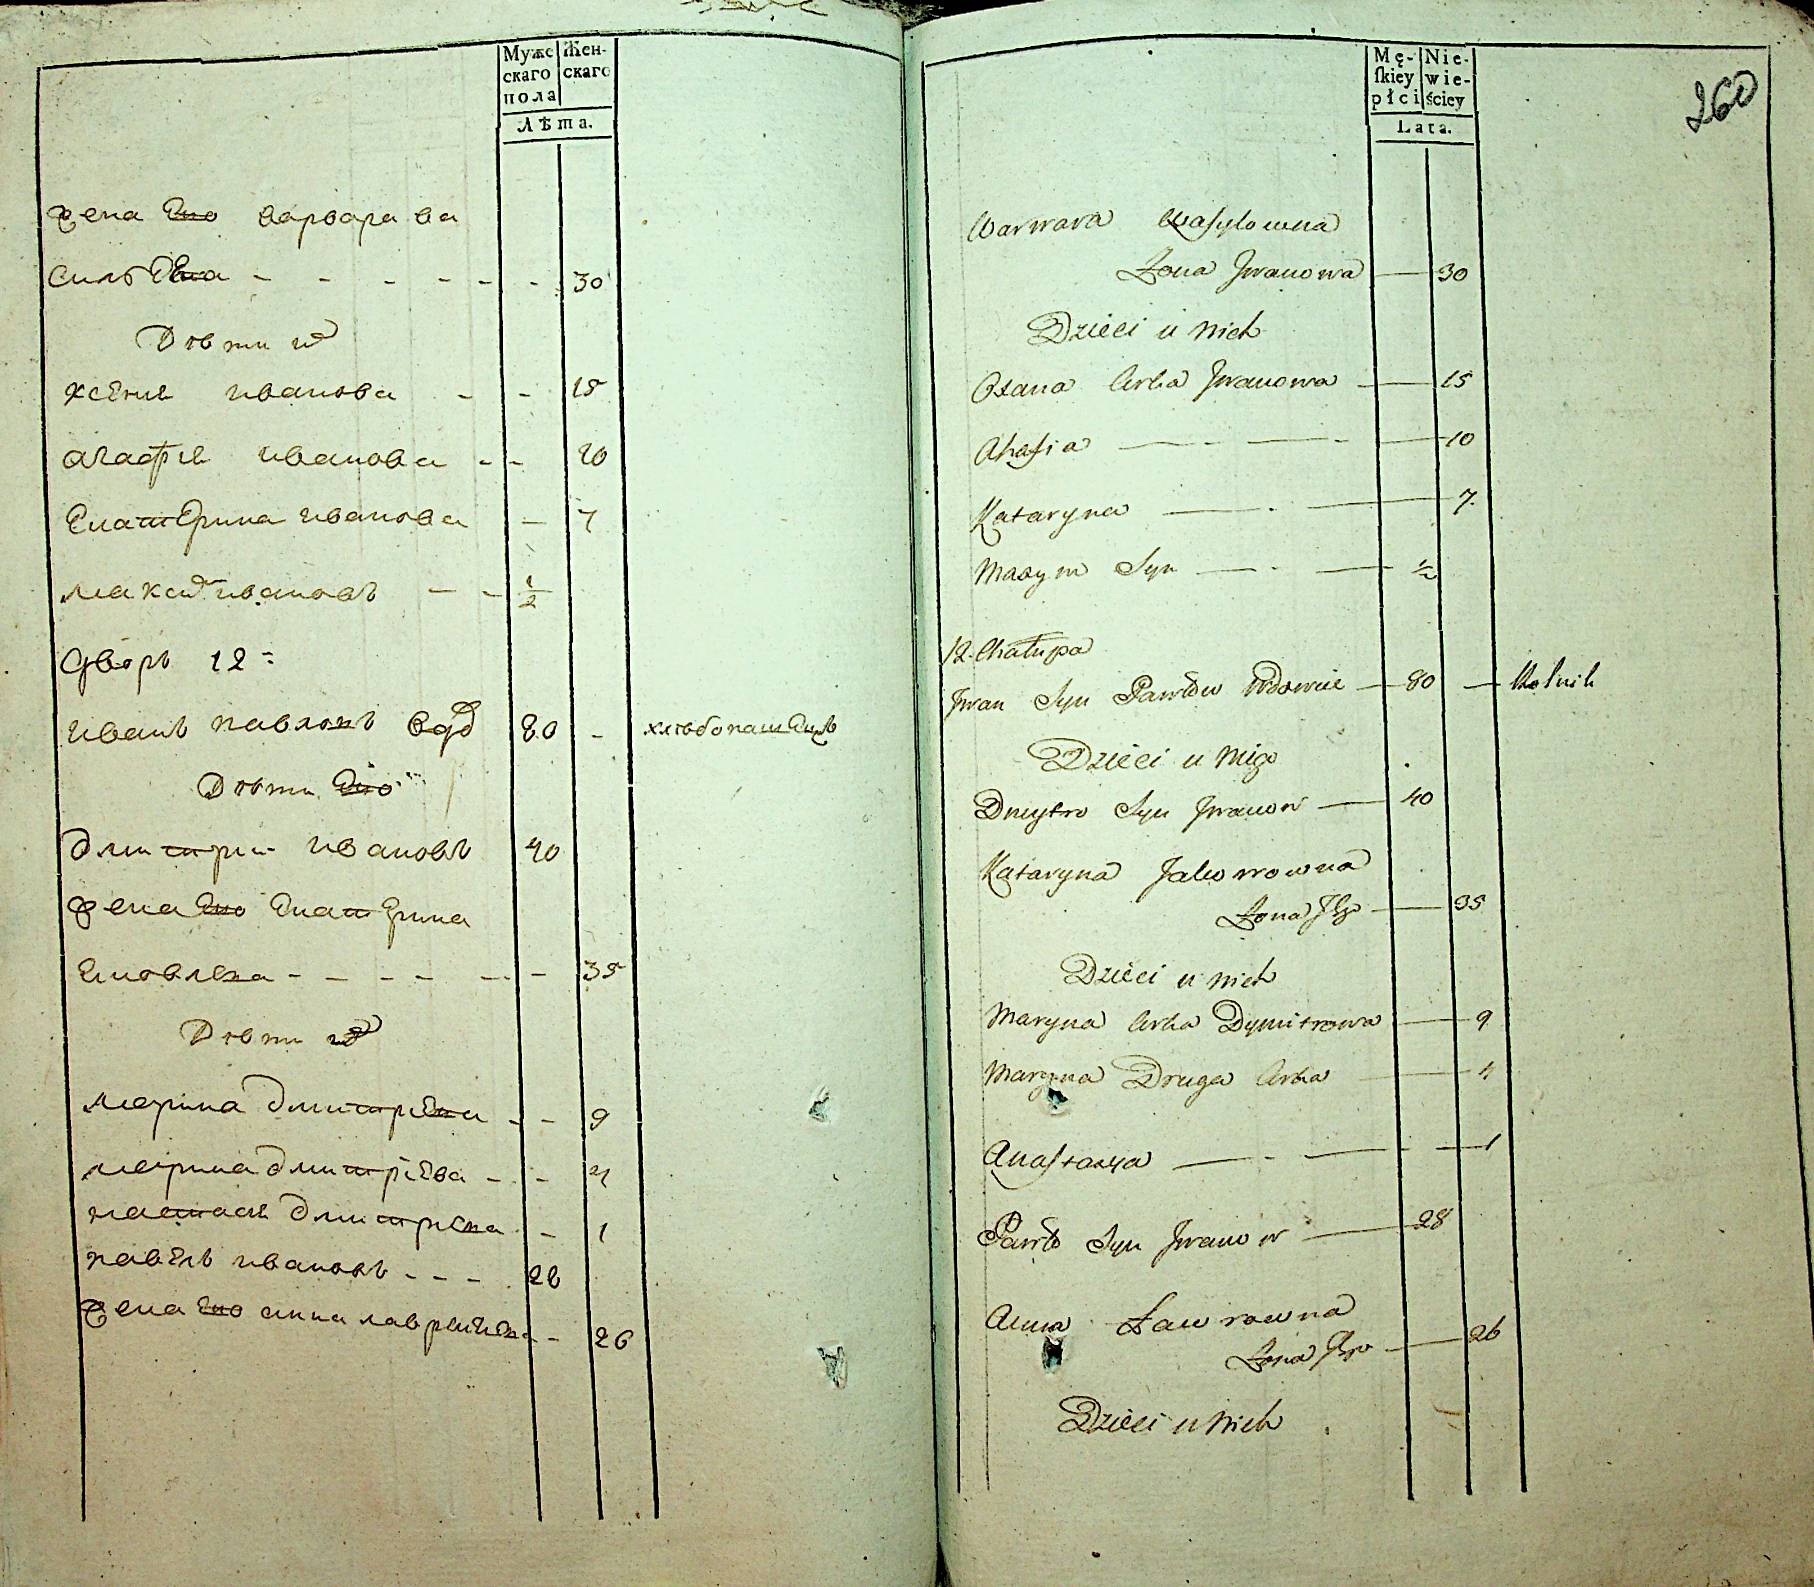 Муже
скаго
пола
Жен-
скаго
Лѣта.
жена Его варвара ва
силЕва - - - - - - 30
Дѣти их
ксения иванова - - 15
агафия иванова - - 10
Екатерина иванова - 7
максим ивановъ - - 1/2
дворъ 12
иванъ павловъ вдо 80 - хлѣбопашецъ
Дѣти Его
дмитри ивановъ 40
жена Его Екатерина
Яковлева - - - - - - 35
Дѣти их
марина дмитриева - - 9
марина дмитриева - - 4
настася дмитриева - 1
павелъ ивановъ - - - 28
жена Его анна - - 26
Mę-
skiey
płci
Nie-
wie-
ściey
Lata.
260
Warwara Wasylowna
Żona Jwanowa — 30
Dzieci u Nich
Oxana Curka Jwanowa — 15
Ahafia — - — - — 10
Kataryna — - — 7.
Maxym Syn — - — 1/2
12. Chałupa
Jwan Syn Pawłow Wdowiec — 80 — Rolnik
Dzieci u Nigo
Dmytro Syn Jwanow — 40
Kataryna Jakowowna
Żona Jego — 35
Dzieci u Nich
Maryna Curka Dymitrowa — 9
Maryna Druga Curka — 4
Anastazya — - — - — 1
Pawło Syn Jwanow — 28
Anna Ławrowna
Żona Jego — 26
Dzieci u Nich